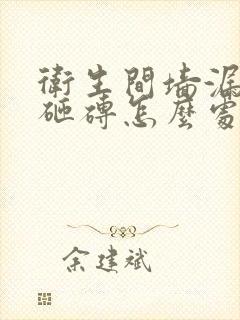 衛生間墻漏
砸磚怎麼處
余建斌